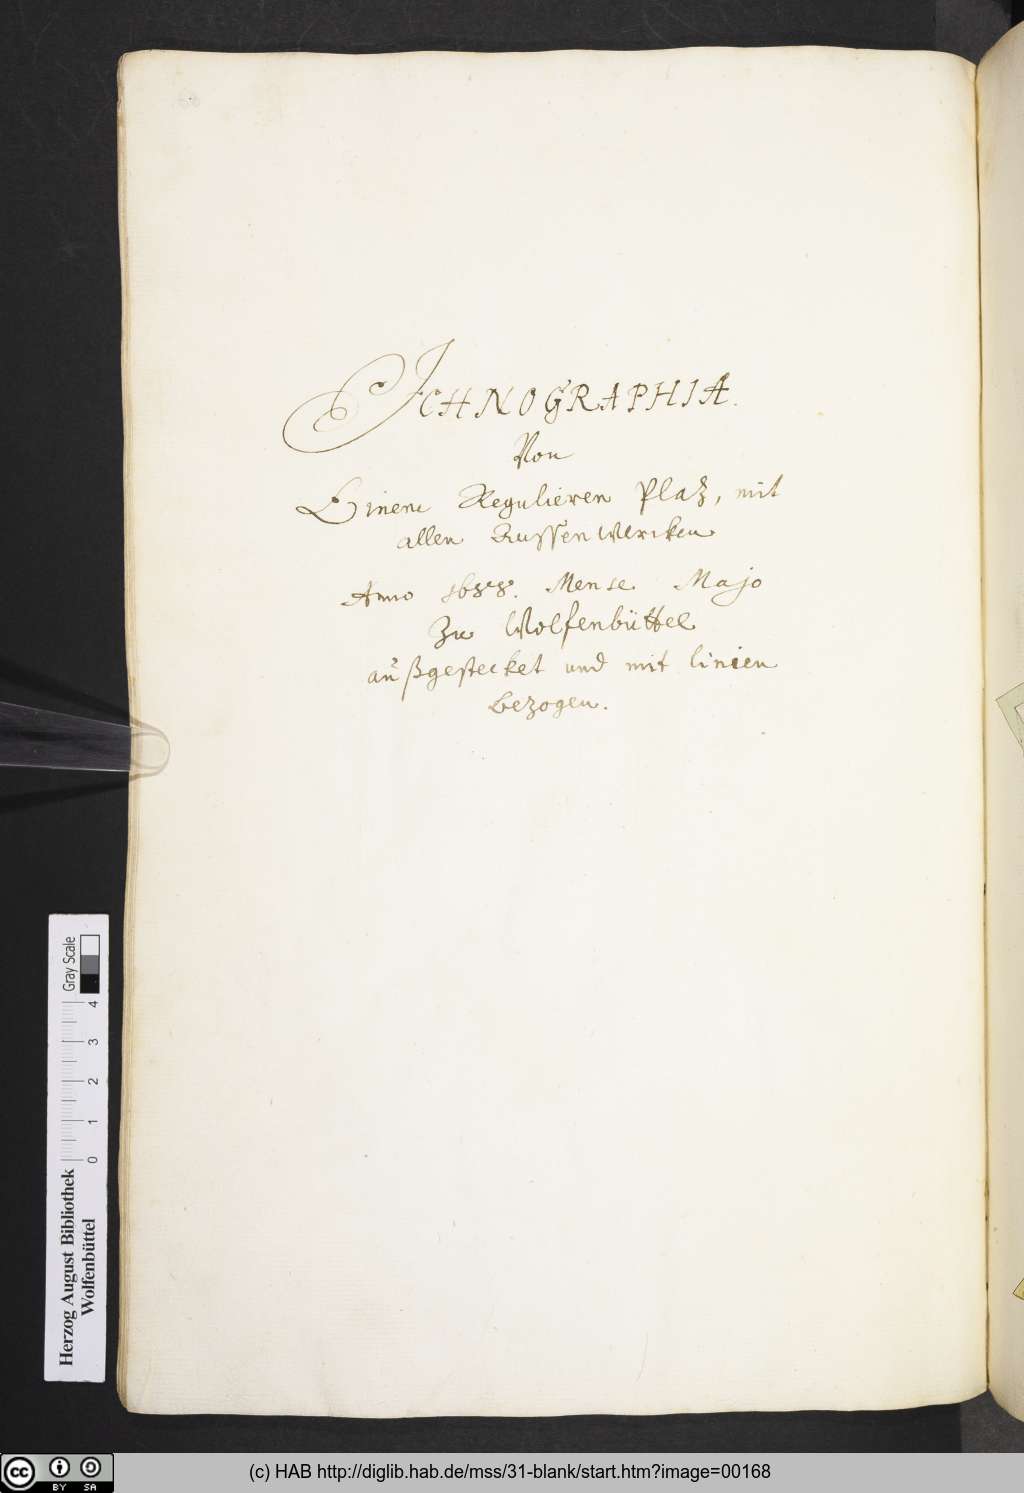 ICHNOGRAPHIA.
Von
Einem Regulieren Platz, mit
allen Aussenwercken
Anno 1688. Mense Majo
Zu Wolfenbüttel
außgestecket und mit linien
bezogen.
Gray Scale
0 1 2 3 4
Herzog August Bibliothek
Wolfenbüttel
cc BY SA
(c) HAB http://diglib.hab.de/mss/31-blank/start.htm?image=00168